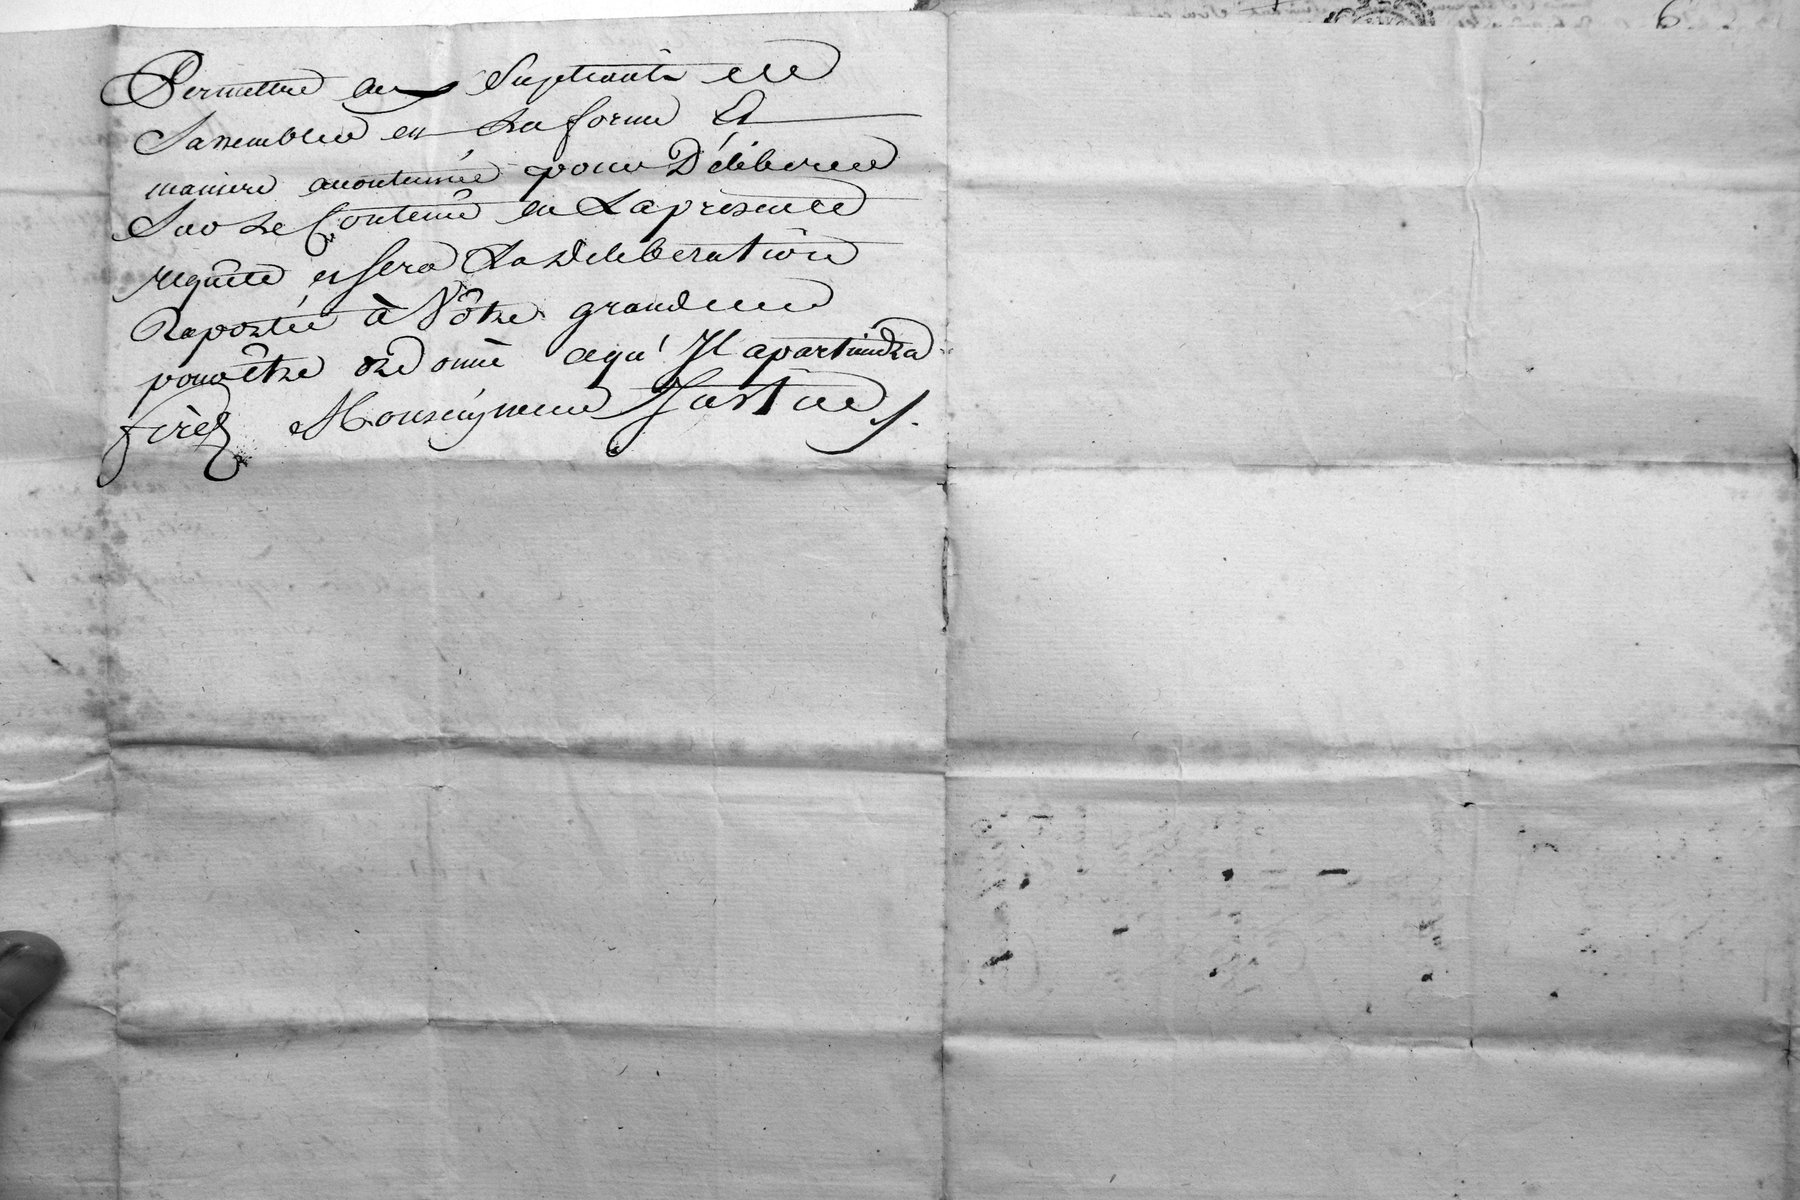 Permettre aux Supliants de
Sassembler en La forme Et
maniere acoutumée pour Déliberer
Sur Le Contenû en La presente
requête et sera La Deliberation
Raportée à Vôtre grandeur
pour être ordonné cequ'Il apartiendra
ferés Monseigneur Justice